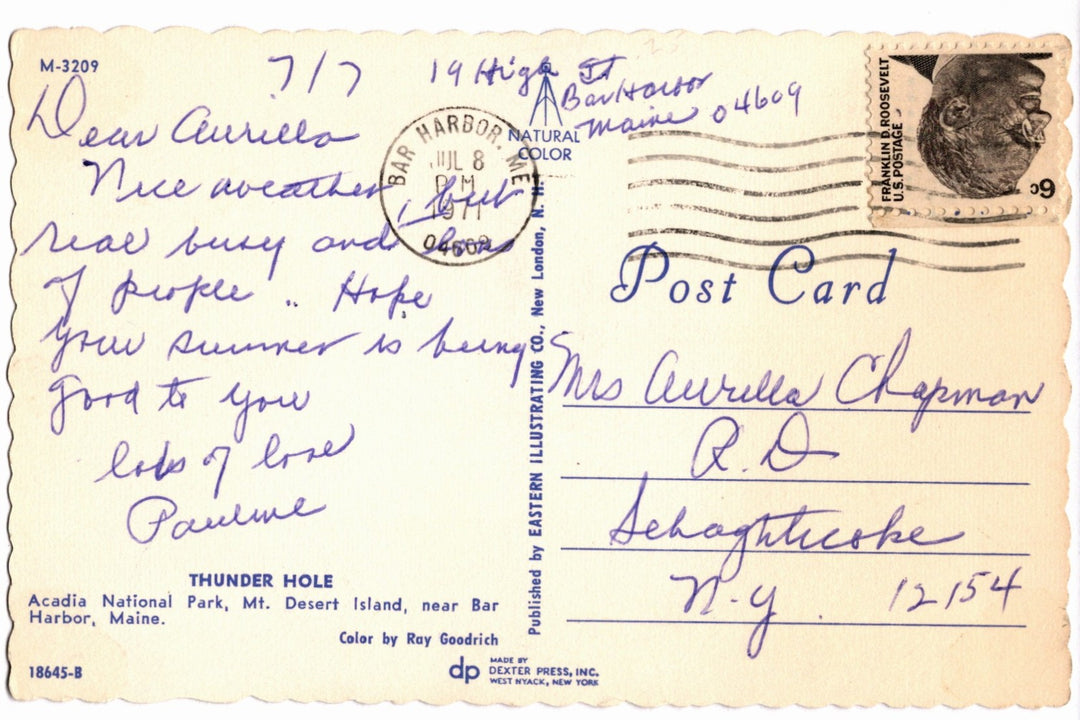 M-3209
7/7
19 High St
Bar Harbor
Maine 04609
Dear Aurella
Nice weather, but
real busy and
of people .. Hope
your summer is being
good to you
lots of love
Pauline
THUNDER HOLE
Acadia National Park, Mt. Desert Island, near Bar
Harbor, Maine.
Color by Ray Goodrich
18645-B
NATURAL
COLOR
BAR HARBOR, ME
JUL 8
PM
1971
04609
Published by EASTERN ILLUSTRATING CO., New London, N. H.
dp
MADE BY
DEXTER PRESS, INC.
WEST NYACK, NEW YORK
FRANKLIN D. ROOSEVELT
U.S. POSTAGE
6c
Post Card
Mrs Aurella Chapman
R.D
Schaghticoke
N.Y. 12154